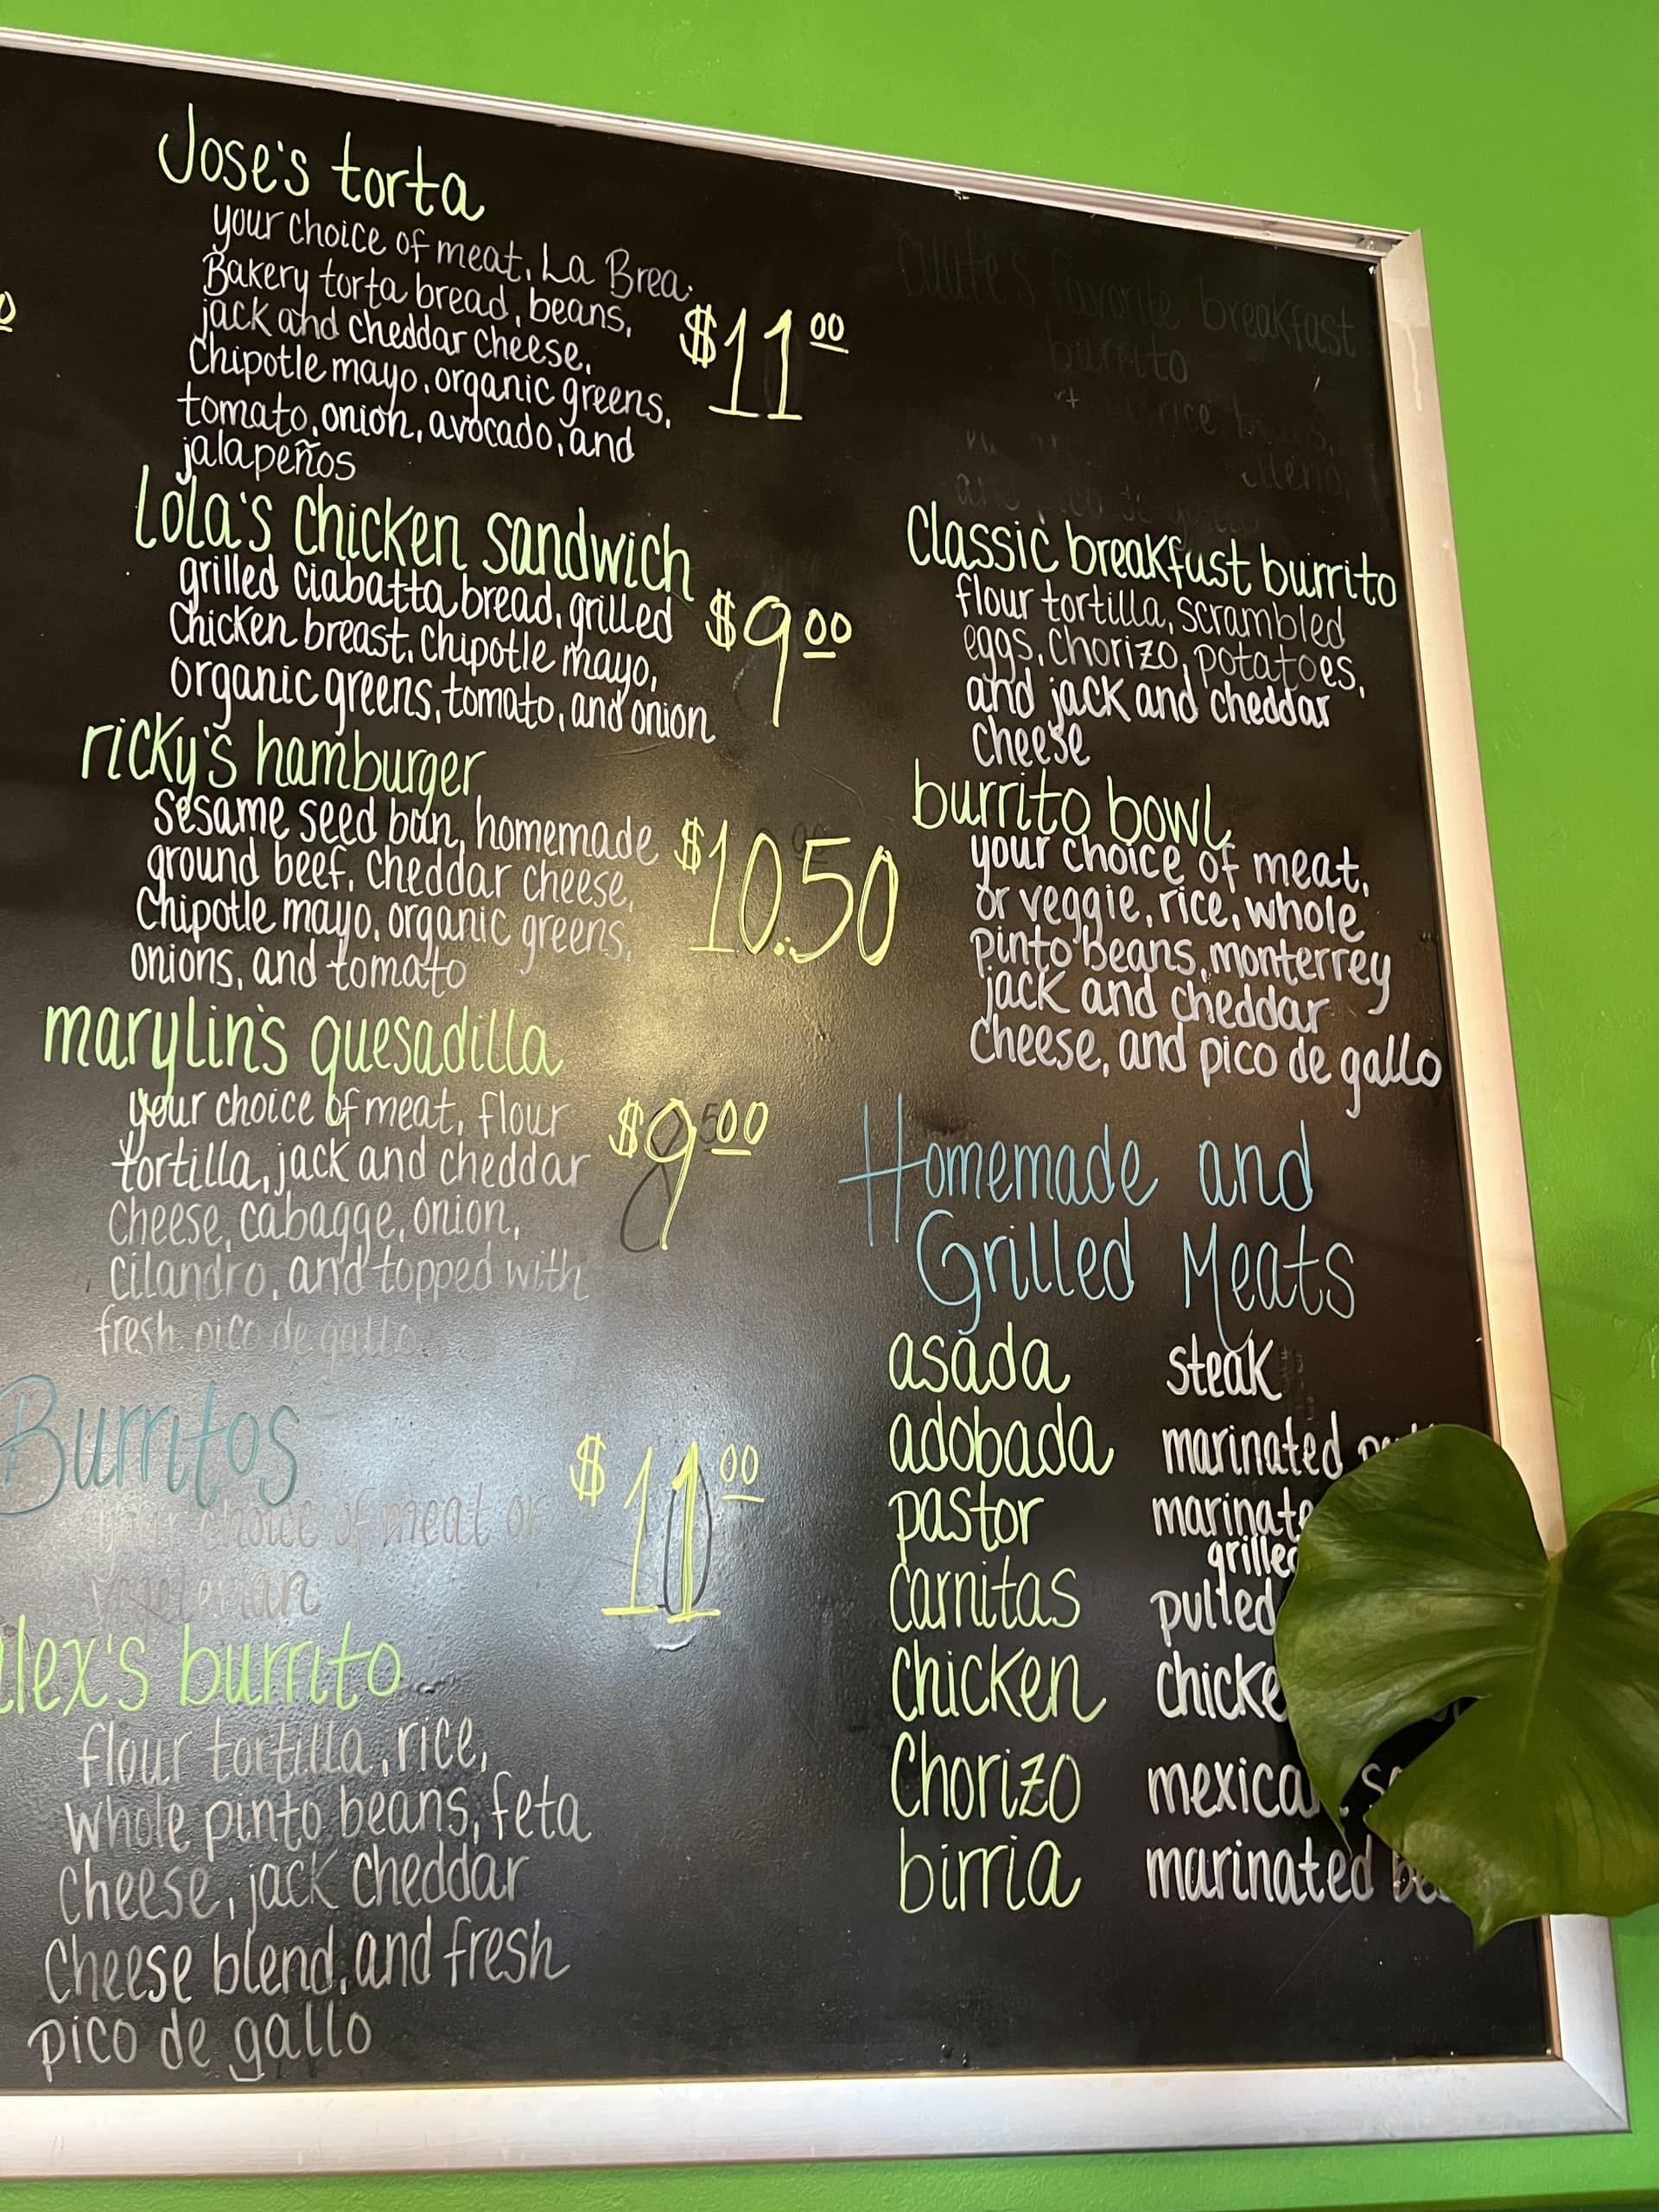 Jose's torta
your choice of meat, La Brea
Bakery torta bread, beans,
jack and cheddar cheese,
Chipotle mayo, organic greens,
tomato, onion, avocado, and
jalapeños
$11 00
Lola's chicken sandwich
grilled ciabatta bread, grilled
Chicken breast, Chipotle mayo,
organic greens, tomato, and onion
$9 00
ricky's hamburger
Sesame seed bun, homemade
ground beef, Cheddar cheese,
Chipotle mayo, organic greens,
onions, and tomato
$10.50
marylin's quesadilla
your choice of meat, flour
tortilla, jack and cheddar
Cheese, cabagge, onion,
cilandro, and topped with
fresh pico de gallo
$9 00
Burritos
your choice of meat or
$11 00
alex's burrito
flour tortilla, rice,
whole pinto beans, feta
Cheese, jack cheddar
Cheese blend, and fresh
pico de gallo
favorite breakfast
burrito
rice,
Classic breakfast burrito
flour tortilla, scrambled
eggs, Chorizo, potatoes,
and jack and cheddar
cheese
burrito bowl
your choice of meat,
or veggie, rice, whole
pinto beans, monterrey
jack and cheddar
cheese, and pico de gallo
Homemade and
Grilled Meats
asada steak
adobada marinated
pastor
carnitas pulled
chicken
Chorizo
birria marinated